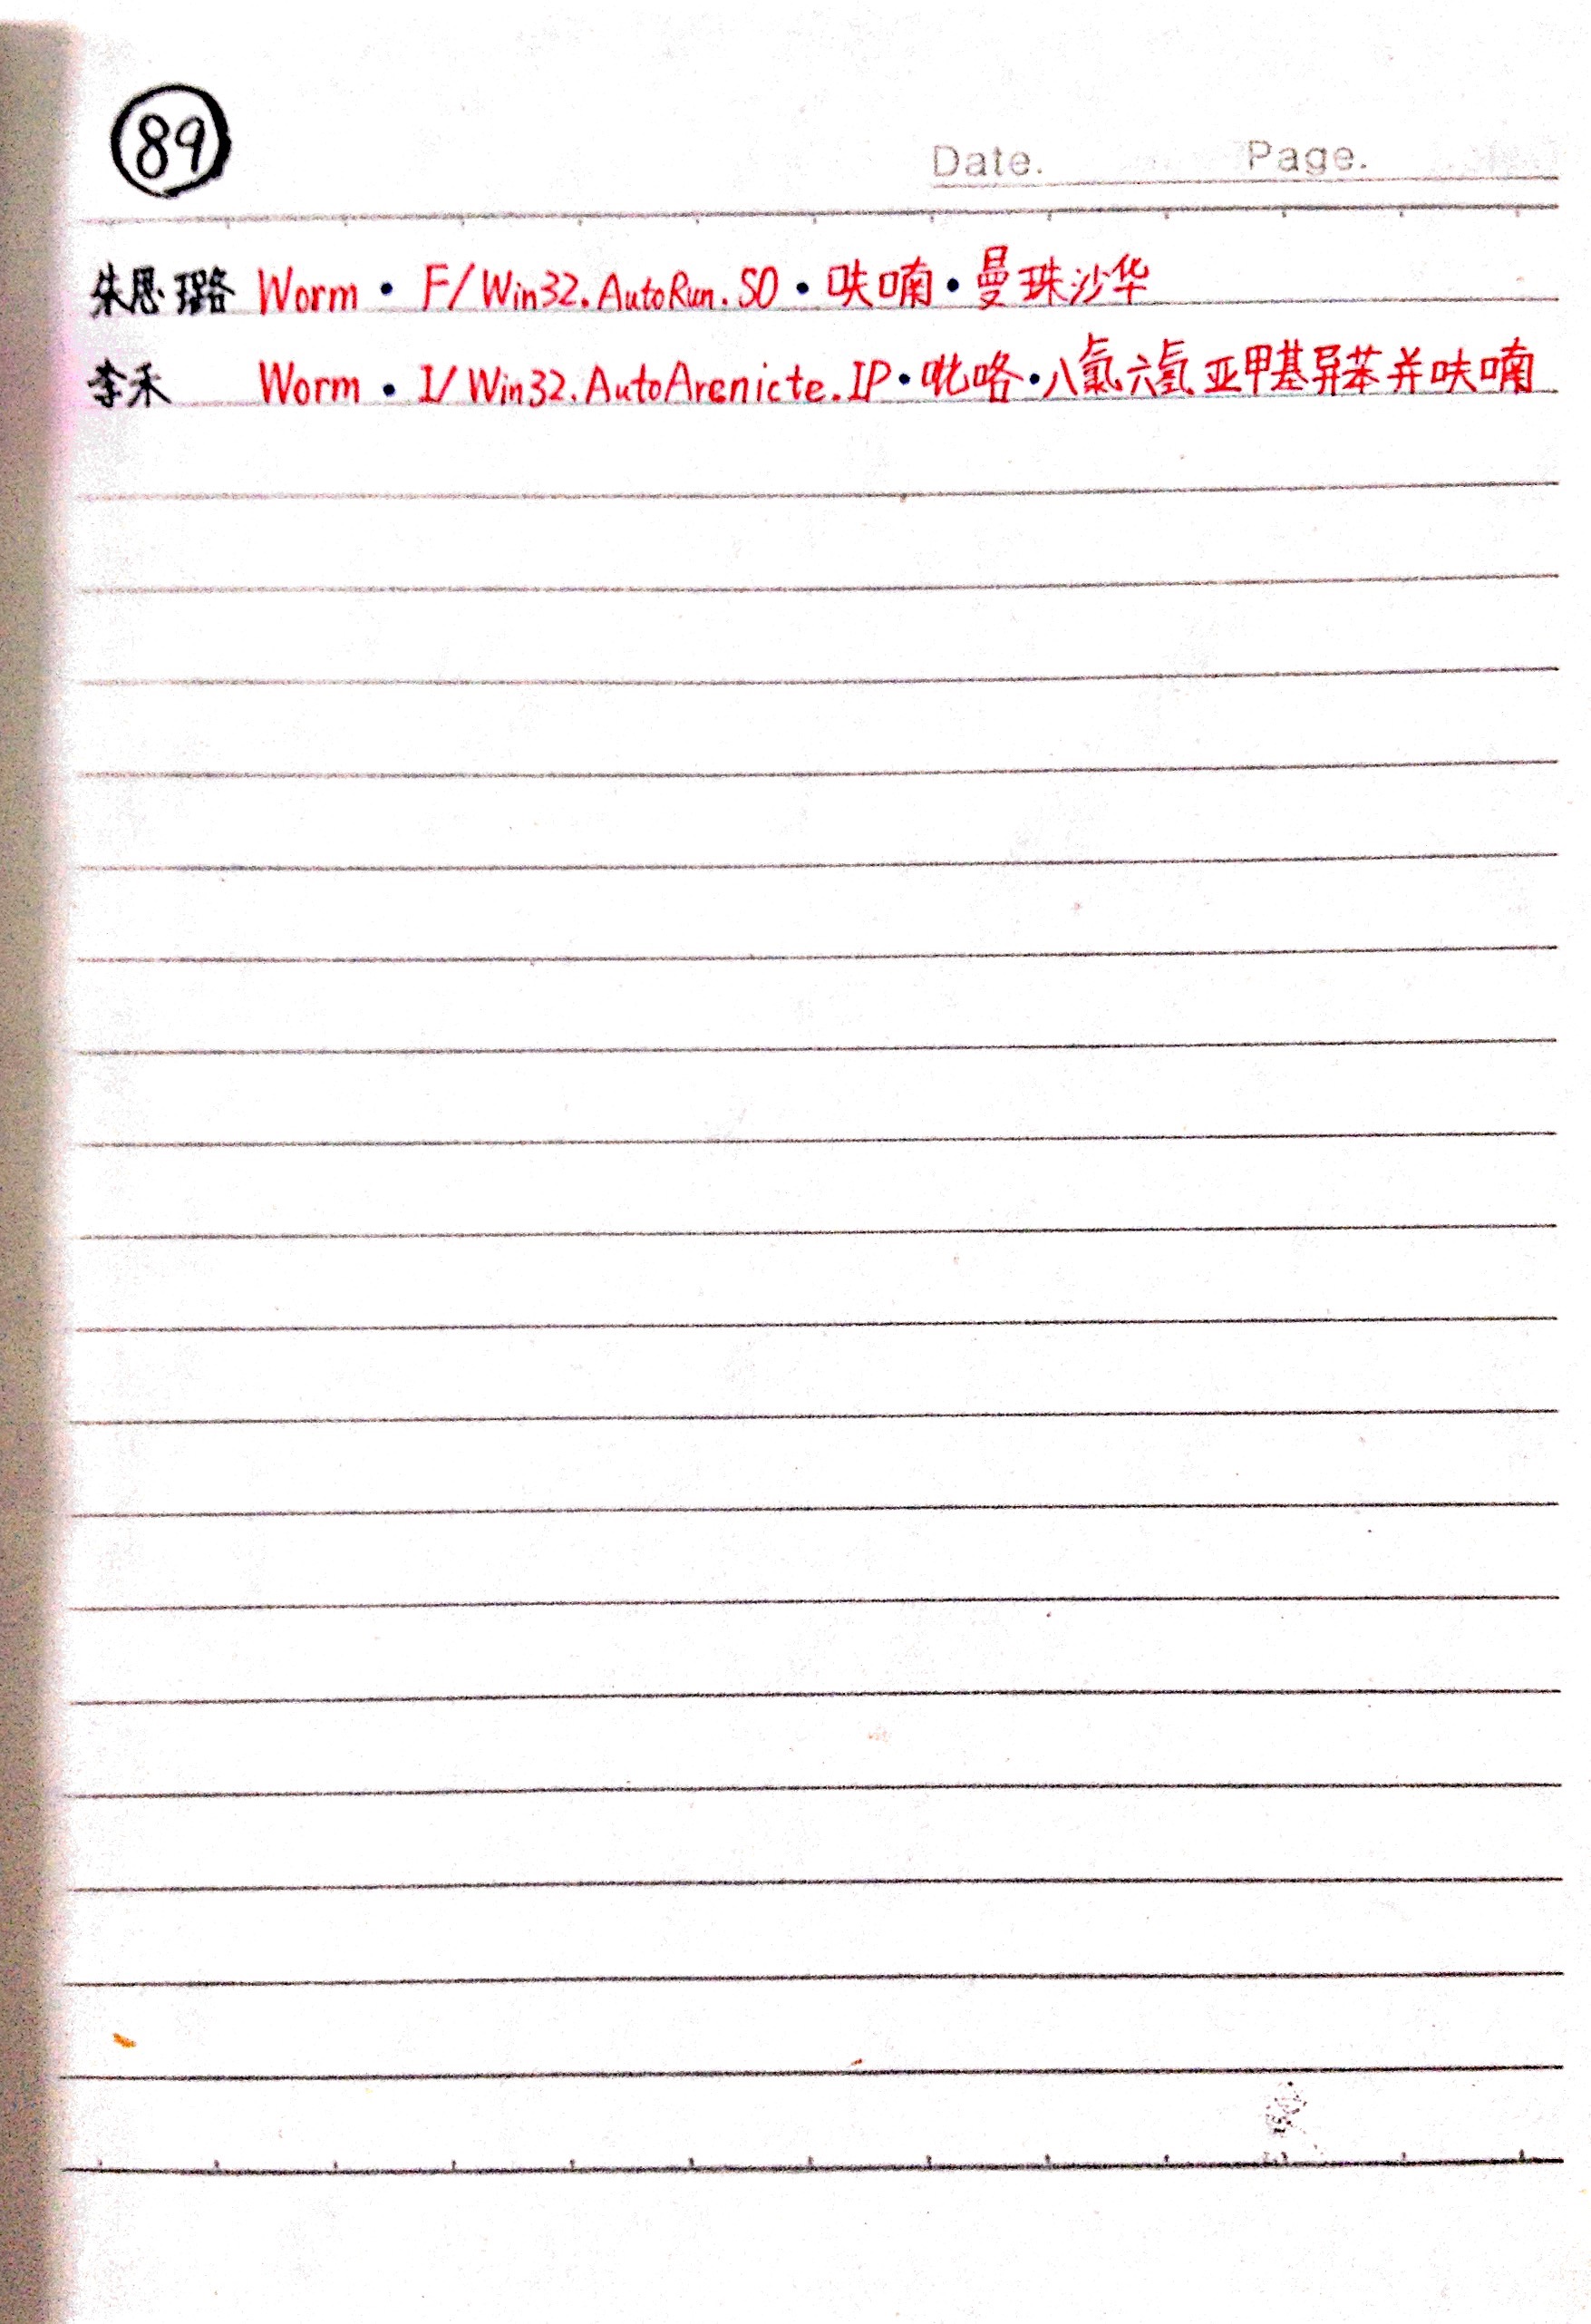 89
Date. Page.
朱思璐 Worm · F/Win32.AutoRun.SO · 呋喃 · 曼珠沙华
李禾 Worm · I/Win32.AutoArenicte.IP · 吡咯 · 八氯六氢亚甲基异苯并呋喃